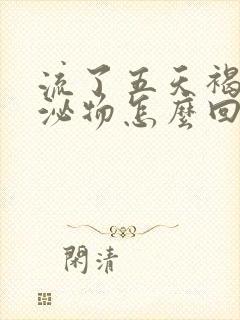 流了五天褐
泌物怎麼回
閑清